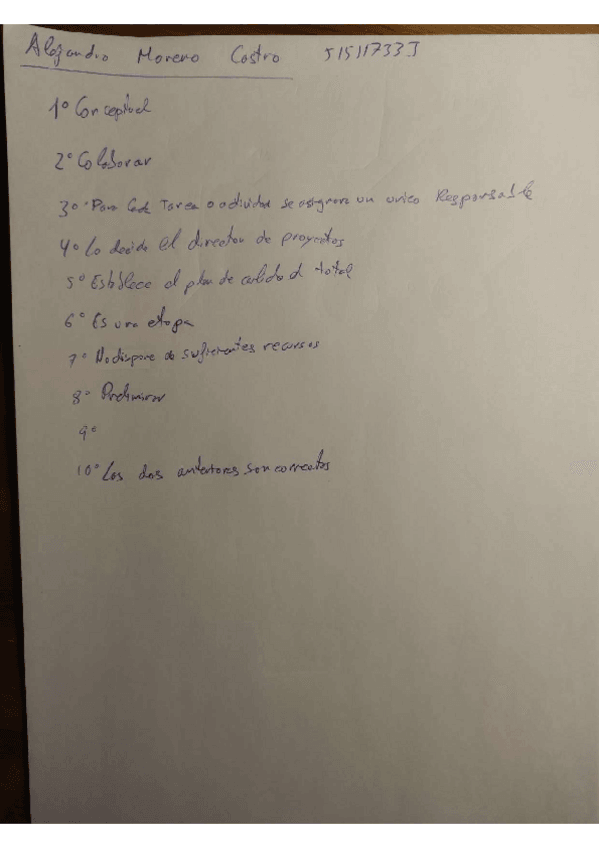 Alejandro Moreno Castro 51511733J
1º Conceptual
2º Colaborar
3º Para Cada Tarea o actividad se asignara un unico Responsable
4º Lo decide el director de proyectos
5º Establece el plan de calidad total
6º Es una etapa
7º No dispone de suficientes recursos
8º Preliminar
9º
10º Las dos anteriores son correctas